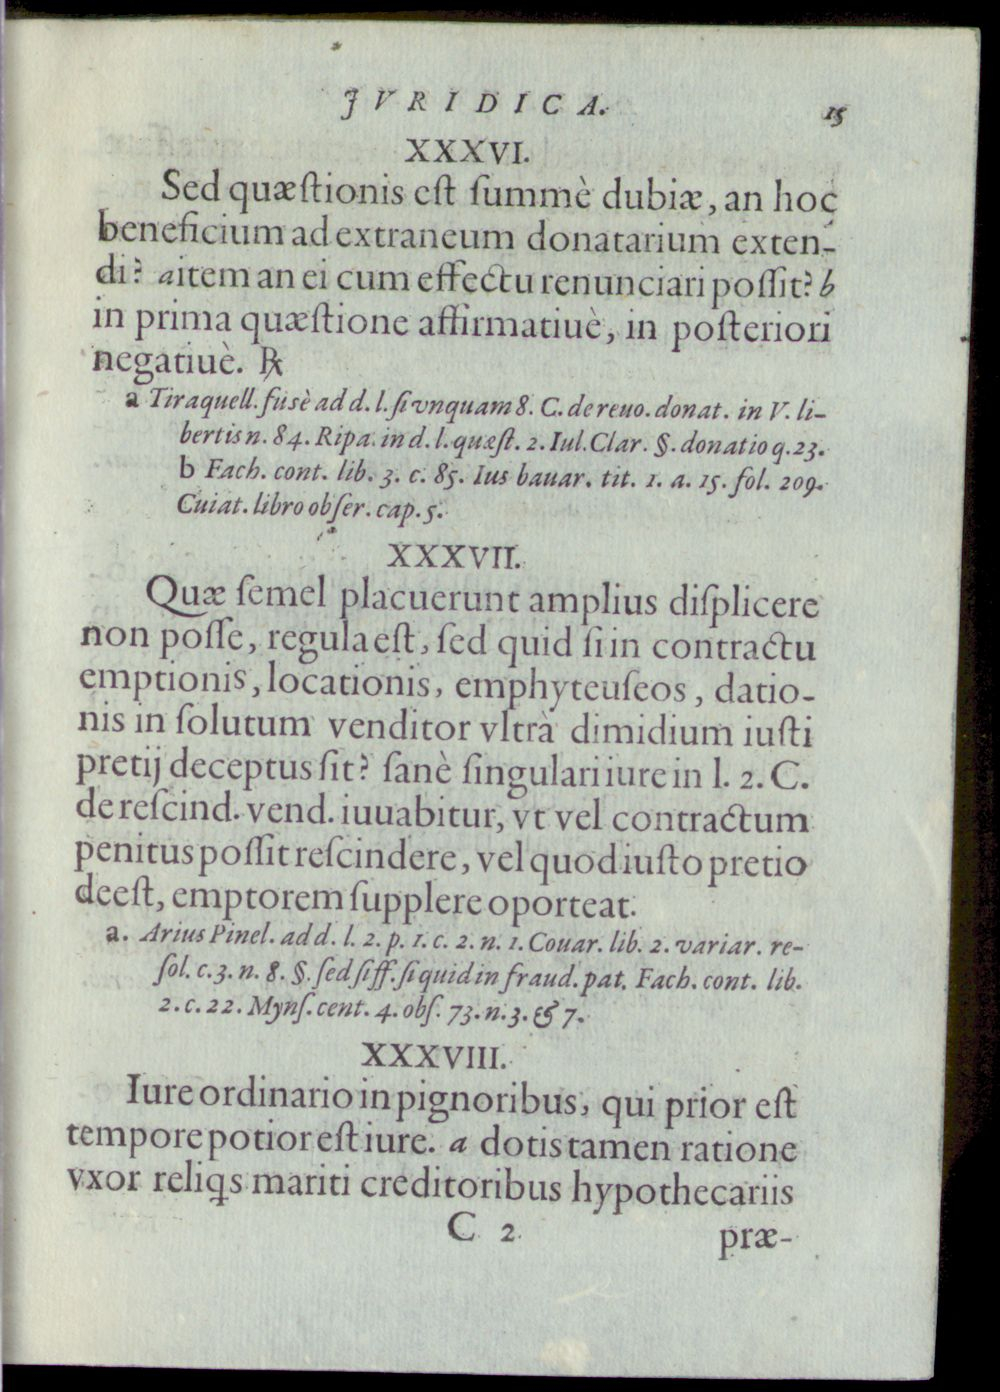 JVRIDICA. 15
XXXVI.
Sed quæſtionis eſt ſummè dubiæ, an hoc
beneficium ad extraneum donatarium exten-
di? a item an ei cum effectu renunciari poſſit? b
in prima quæſtione affirmatiuè, in poſteriori
negatiuè. ℞
a Tiraquell. fusè ad d. l. ſi vnquam 8. C. de reuo. donat. in V. li-
bertis n. 84. Ripa. in d. l. quæſt. 2. Iul. Clar. §. donatio q. 23.
b Fach. cont. lib. 3. c. 85. Ius bauar. tit. 1. a. 15. fol. 209.
Cuiat. libro obſer. cap. 5.
XXXVII.
Quæ ſemel placuerunt amplius diſplicere
non poſſe, regula eſt, ſed quid ſi in contractu
emptionis, locationis, emphyteuſeos, datio-
nis in ſolutum venditor vltrà dimidium iuſti
pretij deceptus ſit? ſanè ſingulari iure in l. 2. C.
de reſcind. vend. iuuabitur, vt vel contractum
penitus poſſit reſcindere, vel quod iuſto pretio
deeſt, emptorem ſupplere oporteat.
a. Arius Pinel. ad d. l. 2. p. 1. c. 2. n. 1. Couar. lib. 2. variar. re-
ſol. c. 3. n. 8. §. ſed ſi ff. ſi quid in fraud. pat. Fach. cont. lib.
2. c. 22. Mynſ. cent. 4. obſ. 73. n. 3. & 7.
XXXVIII.
Iure ordinario in pignoribus, qui prior eſt
tempore potior eſt iure. a dotis tamen ratione
vxor reliq̃s mariti creditoribus hypothecariis
C 2 præ-